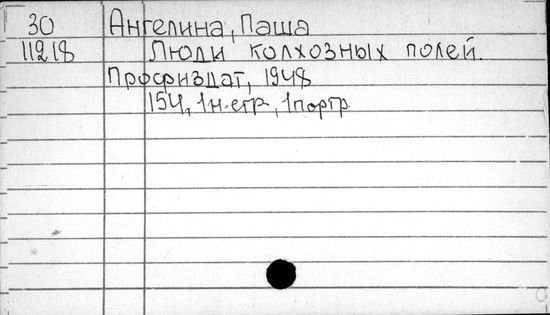 30 Ангелина, Паша
11218 Люди колхозных полей.
Профиздат, 1948
154, 1н.стр, 1портр